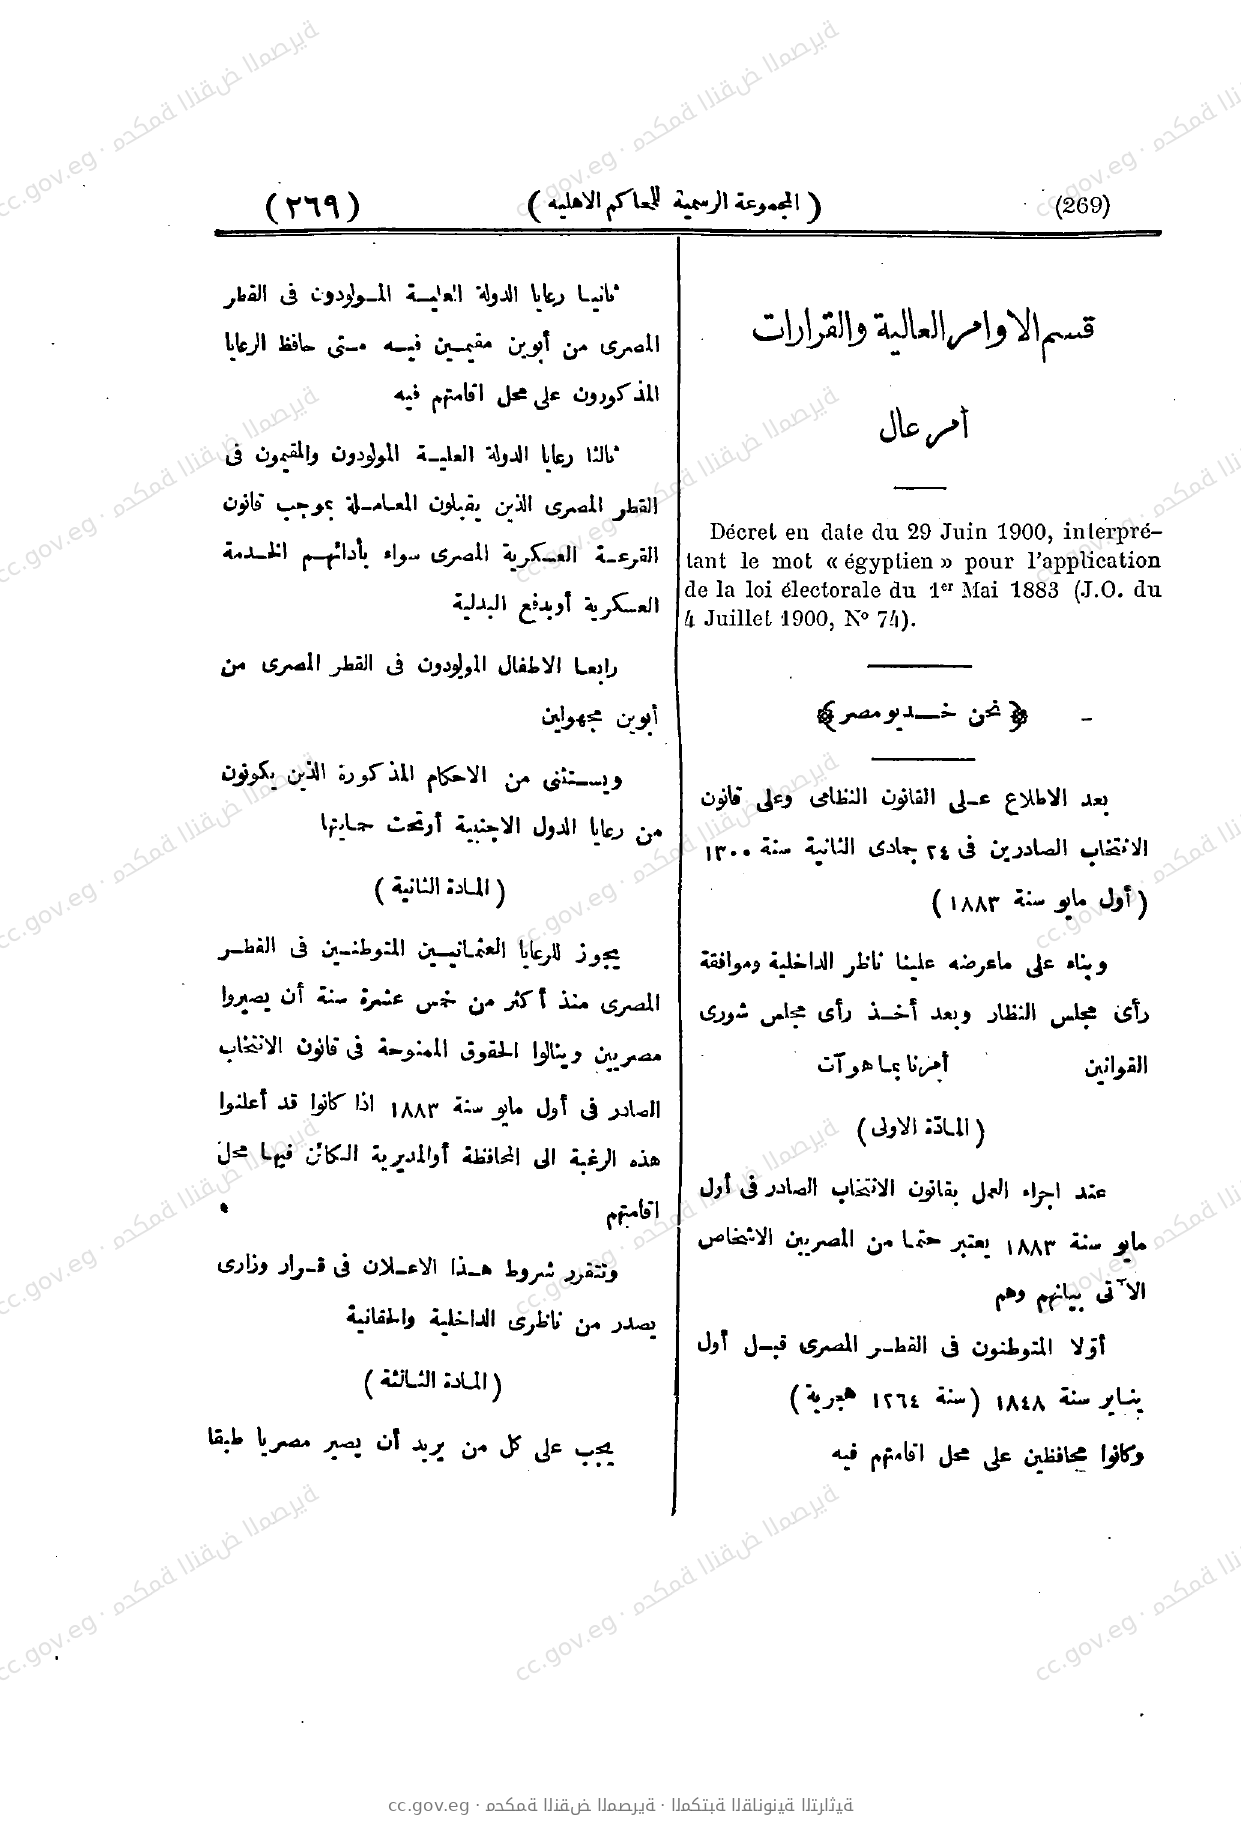 (269) ( المجموعة الرسمية للمحاكم الاهلية ) ( ٢٦٩ )
قسم الاوامر العالية والقرارات
أمر عال
Décret en date du 29 Juin 1900, interpré-
tant le mot « égyptien » pour l'application
de la loi électorale du 1er Mai 1883 (J.O. du
4 Juillet 1900, No 74).
﴿ نحن خديو مصر ﴾
بعد الاطلاع على القانون النظامى وعلى قانون
الانتخاب الصادرين فى ٢٤ جمادى الثانية سنة ١٣٠٠
( أول مايو سنة ١٨٨٣ )
وبناء على ماعرضه علينا ناظر الداخلية وموافقة
رأى مجلس النظار وبعد أخذ رأى مجلس شورى
القوانين أمرنا بما هو آت
( المادّة الاولى )
عند اجراء العمل بقانون الانتخاب الصادر فى أول
مايو سنة ١٨٨٣ يعتبر حتما من المصريين الاشخاص
الآتى بيانهم وهم
أوّلا المتوطنون فى القطر المصرى قبل أول
يناير سنة ١٨٤٨ ( سنة ١٢٦٤ هجرية )
وكانوا محافظين على محل اقامتهم فيه
ثانيا رعايا الدولة العلية المولودون فى القطر
المصرى من أبوين مقيمين فيه متى حافظ الرعايا
المذكورون على محل اقامتهم فيه
ثالثا رعايا الدولة العلية المولودون والمقيمون فى
القطر المصرى الذين يقبلون المعاملة بموجب قانون
القرعة العسكرية المصرى سواء بأدائهم الخدمة
العسكرية أوبدفع البدلية
رابعا الاطفال المولودون فى القطر المصرى من
أبوين مجهولين
ويستثنى من الاحكام المذكورة الذين يكونون
من رعايا الدول الاجنبية أوتحت حمايتها
( المادة الثانية )
يجوز للرعايا العثمانيين المتوطنين فى القطر
المصرى منذ أكثر من خمس عشرة سنة أن يصيروا
مصريين وينالوا الحقوق الممنوحة فى قانون الانتخاب
الصادر فى أول مايو سنة ١٨٨٣ اذا كانوا قد أعلنوا
هذه الرغبة الى المحافظة أوالمديرية الكائن فيها محل
اقامتهم
وتتقرر شروط هذا الاعلان فى قرار وزارى
يصدر من ناظرى الداخلية والحقانية
( المادة الثالثة )
يجب على كل من يريد أن يصير مصريا طبقا
cc.gov.eg · محكمة النقض المصرية · المكتبة القانونية التراثية